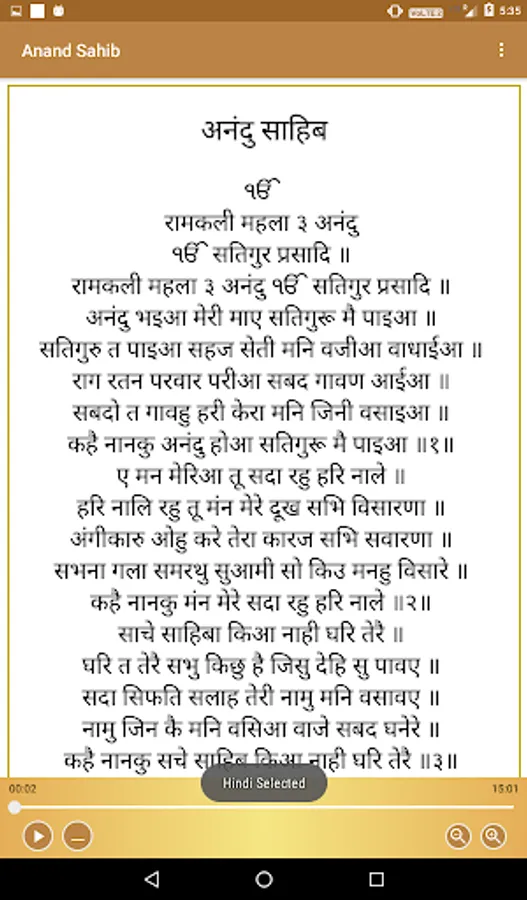 VOLTE 2 5:35
Anand Sahib
अनंदु साहिब
ੴ
रामकली महला ३ अनंदु
ੴ सतिगुर प्रसादि ॥
रामकली महला ३ अनंदु ੴ सतिगुर प्रसादि ॥
अनंदु भइआ मेरी माए सतिगुरू मै पाइआ ॥
सतिगुरु त पाइआ सहज सेती मनि वजीआ वाधाईआ ॥
राग रतन परवार परीआ सबद गावण आईआ ॥
सबदो त गावहु हरी केरा मनि जिनी वसाइआ ॥
कहै नानकु अनंदु होआ सतिगुरू मै पाइआ ॥१॥
ए मन मेरिआ तू सदा रहु हरि नाले ॥
हरि नालि रहु तू मंन मेरे दूख सभि विसारणा ॥
अंगीकारु ओहु करे तेरा कारज सभि सवारणा ॥
सभना गला समरथु सुआमी सो किउ मनहु विसारे ॥
कहै नानकु मंन मेरे सदा रहु हरि नाले ॥२॥
साचे साहिबा किआ नाही घरि तेरै ॥
घरि त तेरै सभु किछु है जिसु देहि सु पावए ॥
सदा सिफति सलाह तेरी नामु मनि वसावए ॥
नामु जिन कै मनि वसिआ वाजे सबद घनेरे ॥
कहै नानकु सचे साहिब किआ नाही घरि तेरै ॥३॥
Hindi Selected
00:02 15:01